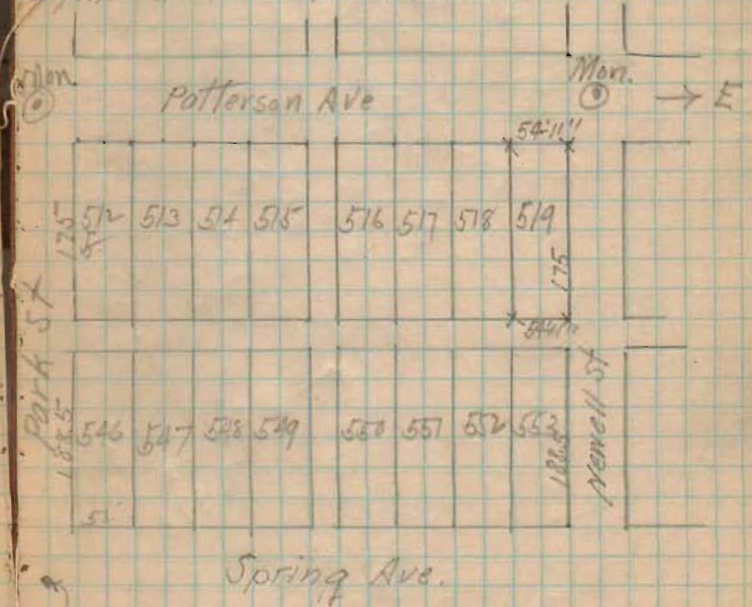 Mon.
Mon.
Patterson Ave
→ E
54'11"
512 513 514 515 516 517 518 519
175
175
54'11"
Park St
Newell St
546 547 548 549 550 551 552 553
188.5
188.5
55
Spring Ave.